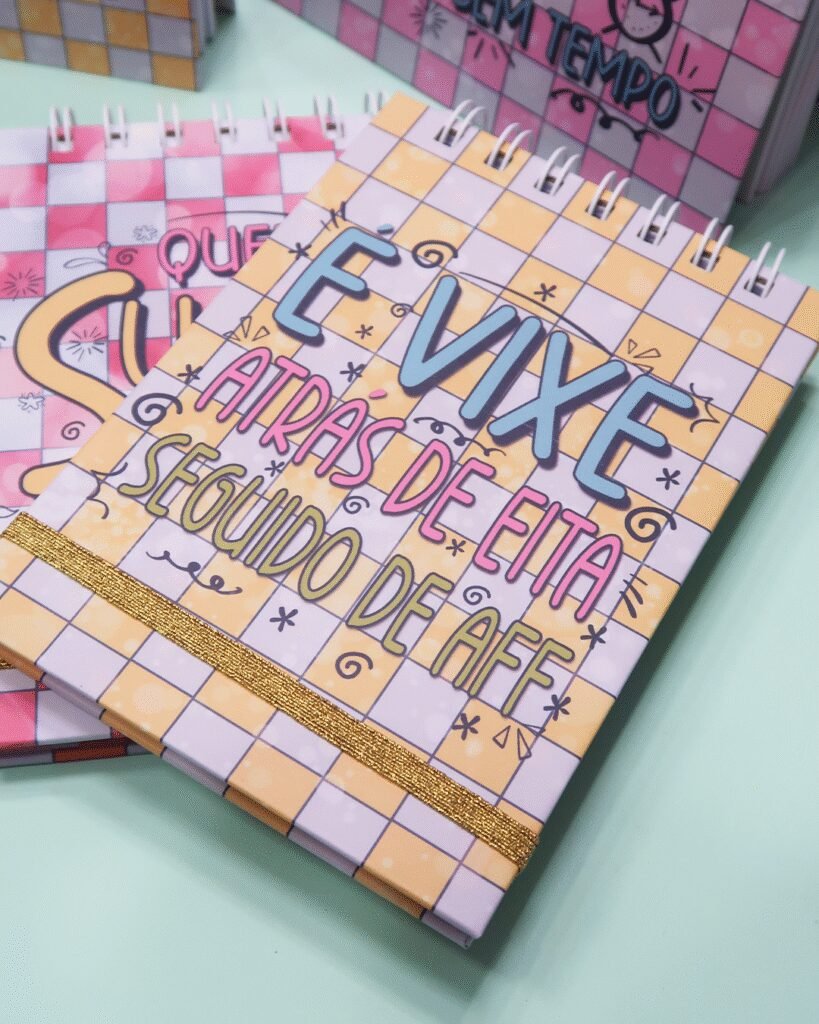 SEM TEMPO
QUE
É VIXE
ATRÁS DE EITA
SEGUIDO DE AFF